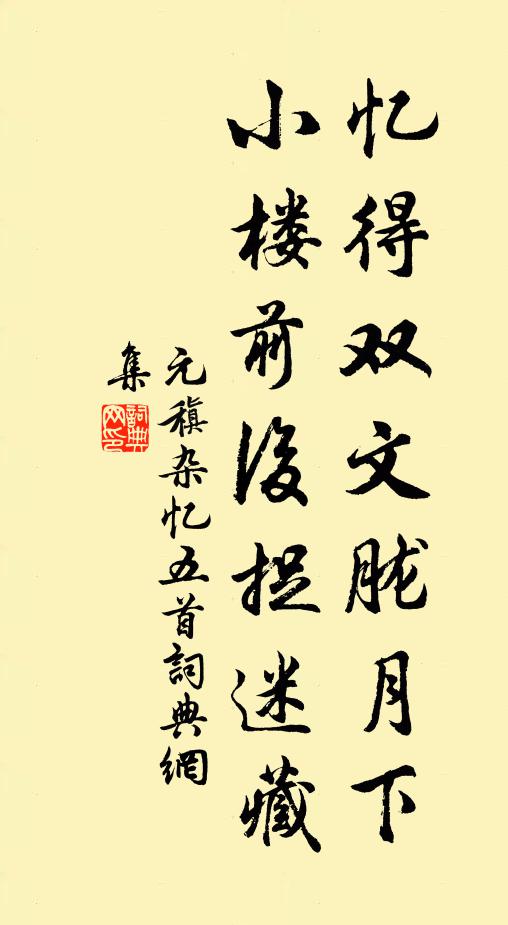 忆得双文胧月下
小楼前後捉迷藏
元稹杂忆五首詞典網
集
詞典网印